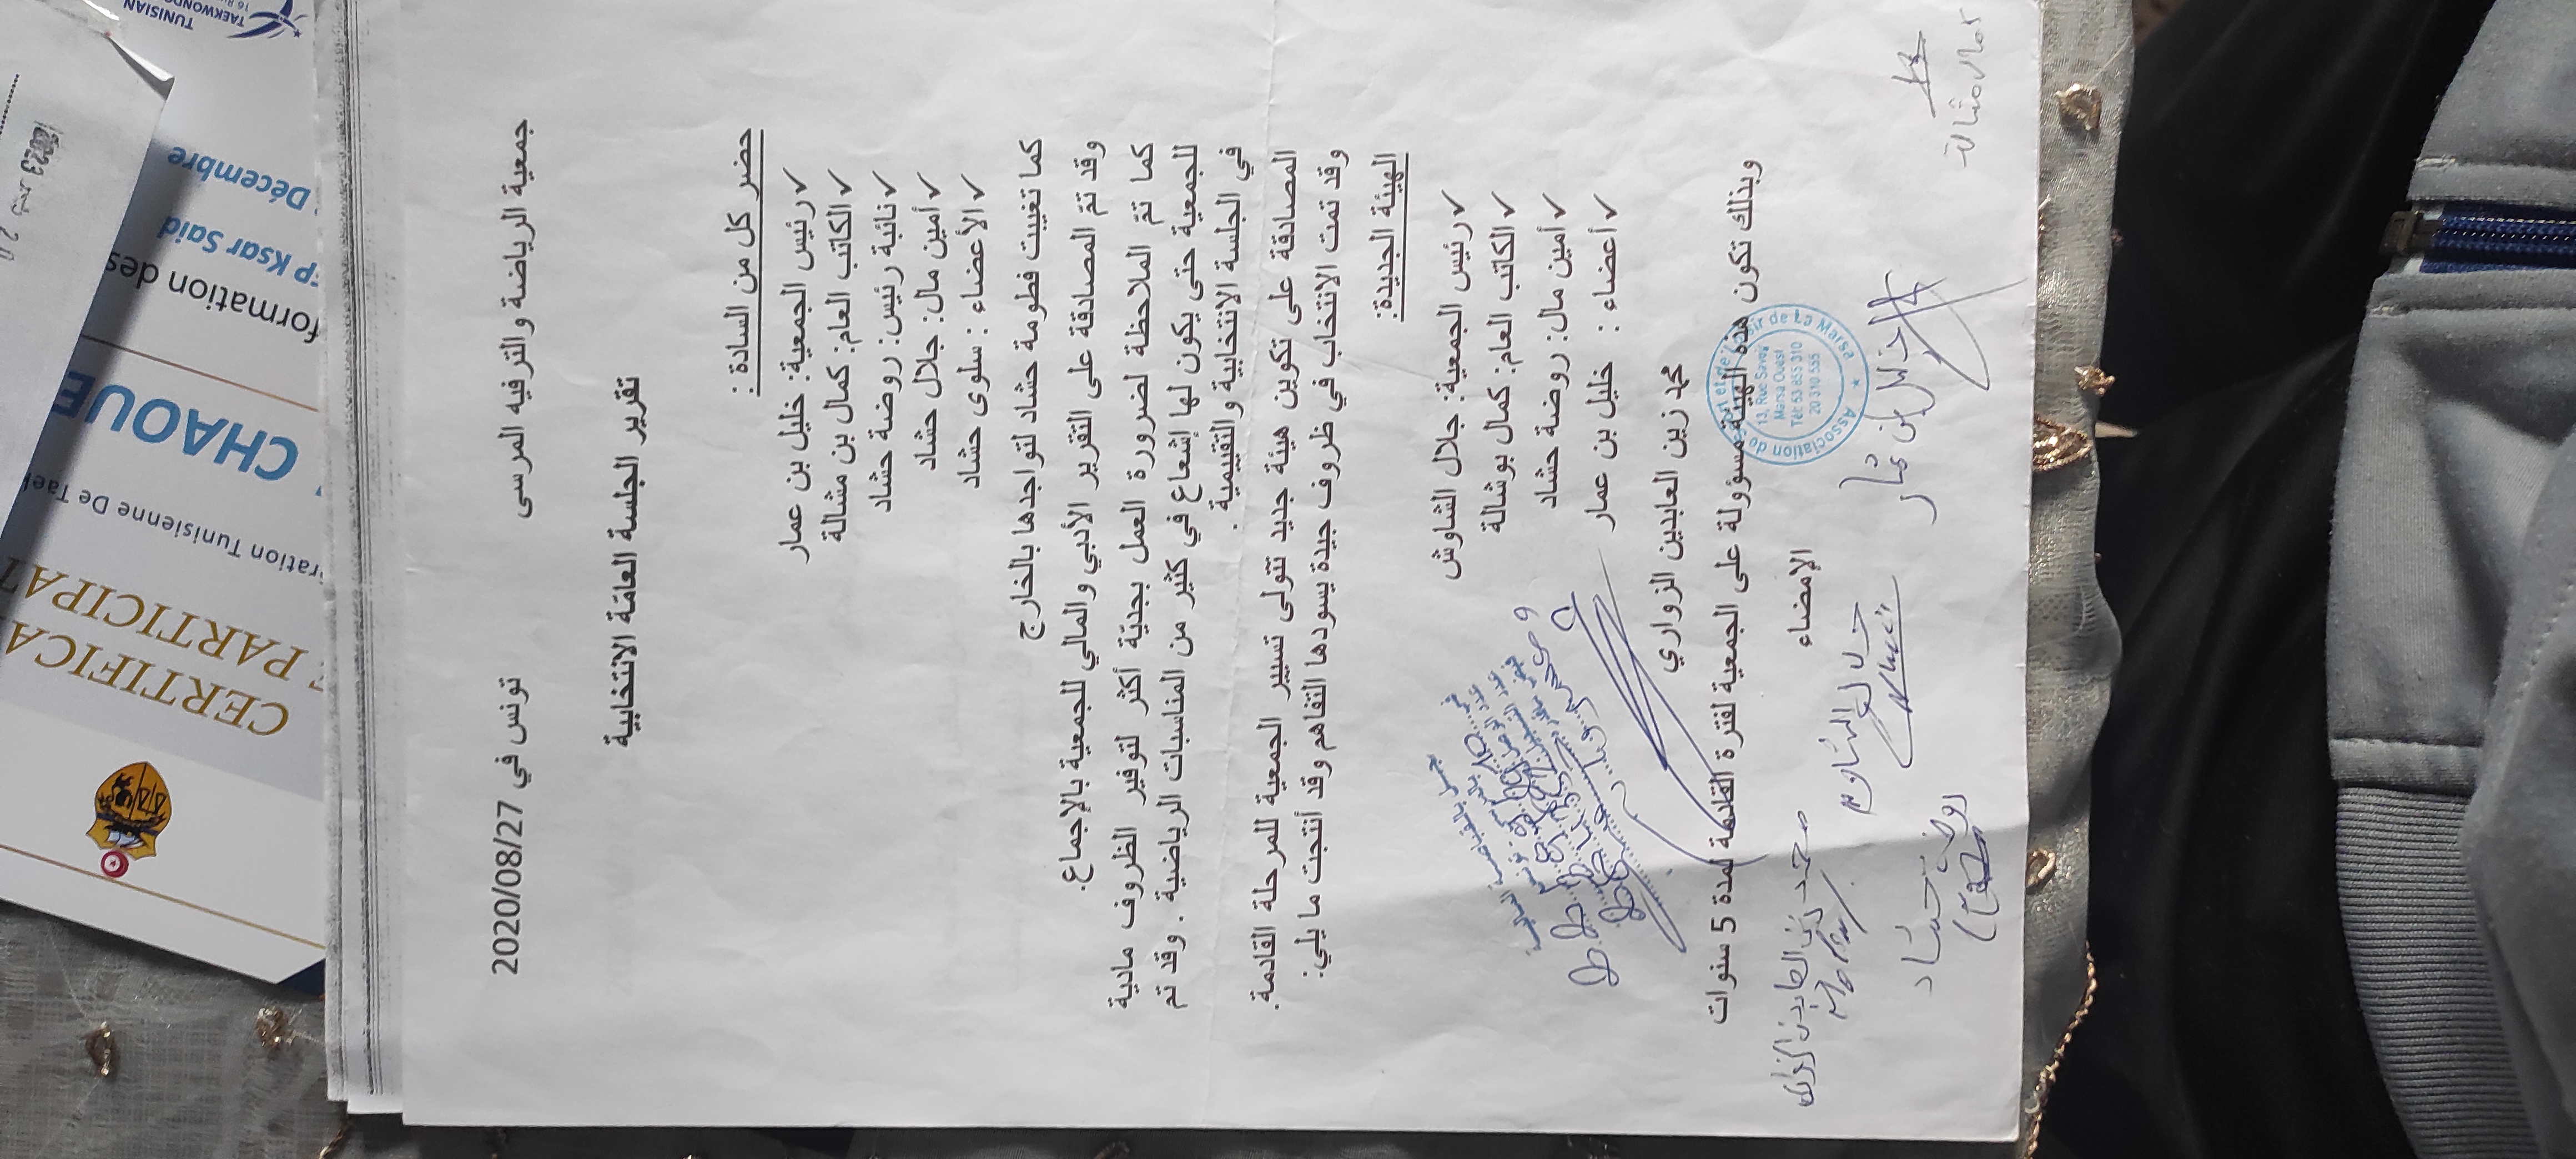 جمعية الرياضة والترفيه المرسى
تونس في 2020/08/27
تقرير الجلسة العامّة الانتخابية
حضر كل من السادة :
✓ رئيس الجمعية: خليل بن عمار
✓ الكاتب العام: كمال بن مشالة
✓ نائبة رئيس: روضة حشاد
✓ أمين مال: جلال حشاد
✓ الأعضاء : سلوى حشاد
كما تغيبت فطومة حشاد لتواجدها بالخارج
وقد تمّ المصادقة على التقرير الأدبي والمالي للجمعية بالإجماع.
كما تمّ الملاحظة لضرورة العمل بجديّة أكثر لتوفير الظروف مادية
للجمعية حتى يكون لها إشعاع في كثير من المناسبات الرياضية . وقد تم
في الجلسة الانتخابية والتقييمية .
المصادقة على تكوين هيئة جديد تتولى تسيير الجمعية للمرحلة القادمة.
وقد تمت الانتخاب في ظروف جيدة يسودها التفاهم وقد أنتجت ما يلي:
الهيئة الجديدة:
✓ رئيس الجمعية: جلال الشاوش
✓ الكاتب العام: كمال بوشالة
✓ أمين مال: روضة حشاد
✓ أعضاء : خليل بن عمار
محمد زين العابدين الزواري
وبذلك تكون هذه الهيئة مسؤولة على الجمعية لفترة القادمة لمدة 5 سنوات
الإمضاء
Association de Sport et de Loisir de La Marsa
13, Rue
Marsa Ouest
Tél: 53 855 310
20 310 555
محمد زين العابدين الزواري
جلال الشاوش
خليل بن عمار
روضة حشاد
كمال مشالة
CERTIFICA
PARTICIPAT
ration Tunisienne De Taek
CHAOUE
formation des
FP Ksar Said
Décembre
TUNISIAN
TAEKWONDO
2023